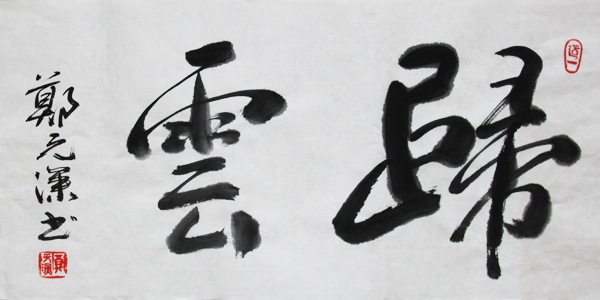 歸雲
鄭元溁书